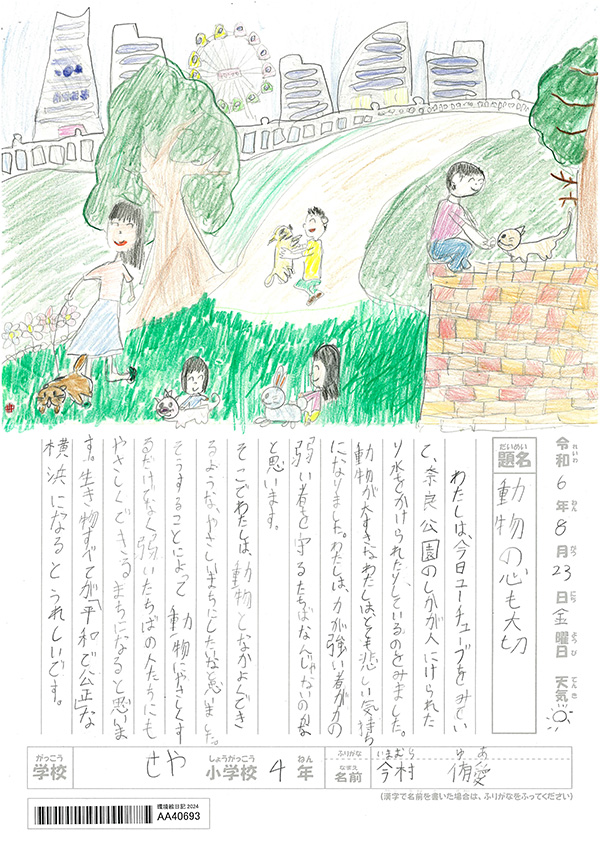 令和6年8月23日金曜日 天気
れいわ ねん がつ にち ようび てんき
だいめい
題名
動物の心も大切
わたしは、今日ユーチューブをみてい
て、奈良公園のしかが人にけられた
り水をかけられたりしているのをみました。
動物が大すきなわたしはとても悲しい気持ち
になりました。わたしは、力が強い者が力の
弱い者を守るたちばなんじゃないのかな
と思います。
そこでわたしは、動物となかよくでき
るような、やさしいまちにしたいなと思いました。
そうすることによって 動物にやさしくす
るだけでなく弱いたちばの人たちにも
やさしくできるまちになると思いま
す。生き物すべてが「平和で公正」な
横浜になるとうれしいです。
がっこう
学校
せや
しょうがっこう
小学校
4
ねん
年
ふりがな
いまむら ゆあ
なまえ
名前
今村 侑愛
(漢字で名前を書いた場合は、ふりがなをふってください)
環境絵日記 2024
AA40693